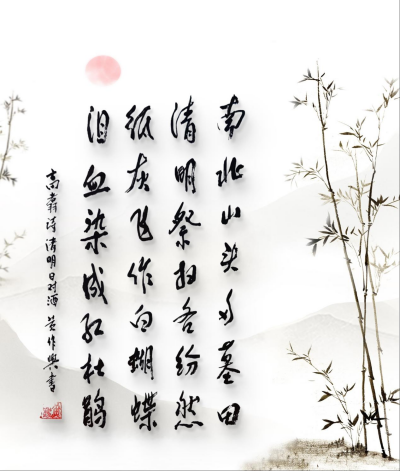 南北山头多墓田
清明祭扫各纷然
纸灰飞作白蝴蝶
泪血染成红杜鹃
高翥诗清明日对酒 作兴书